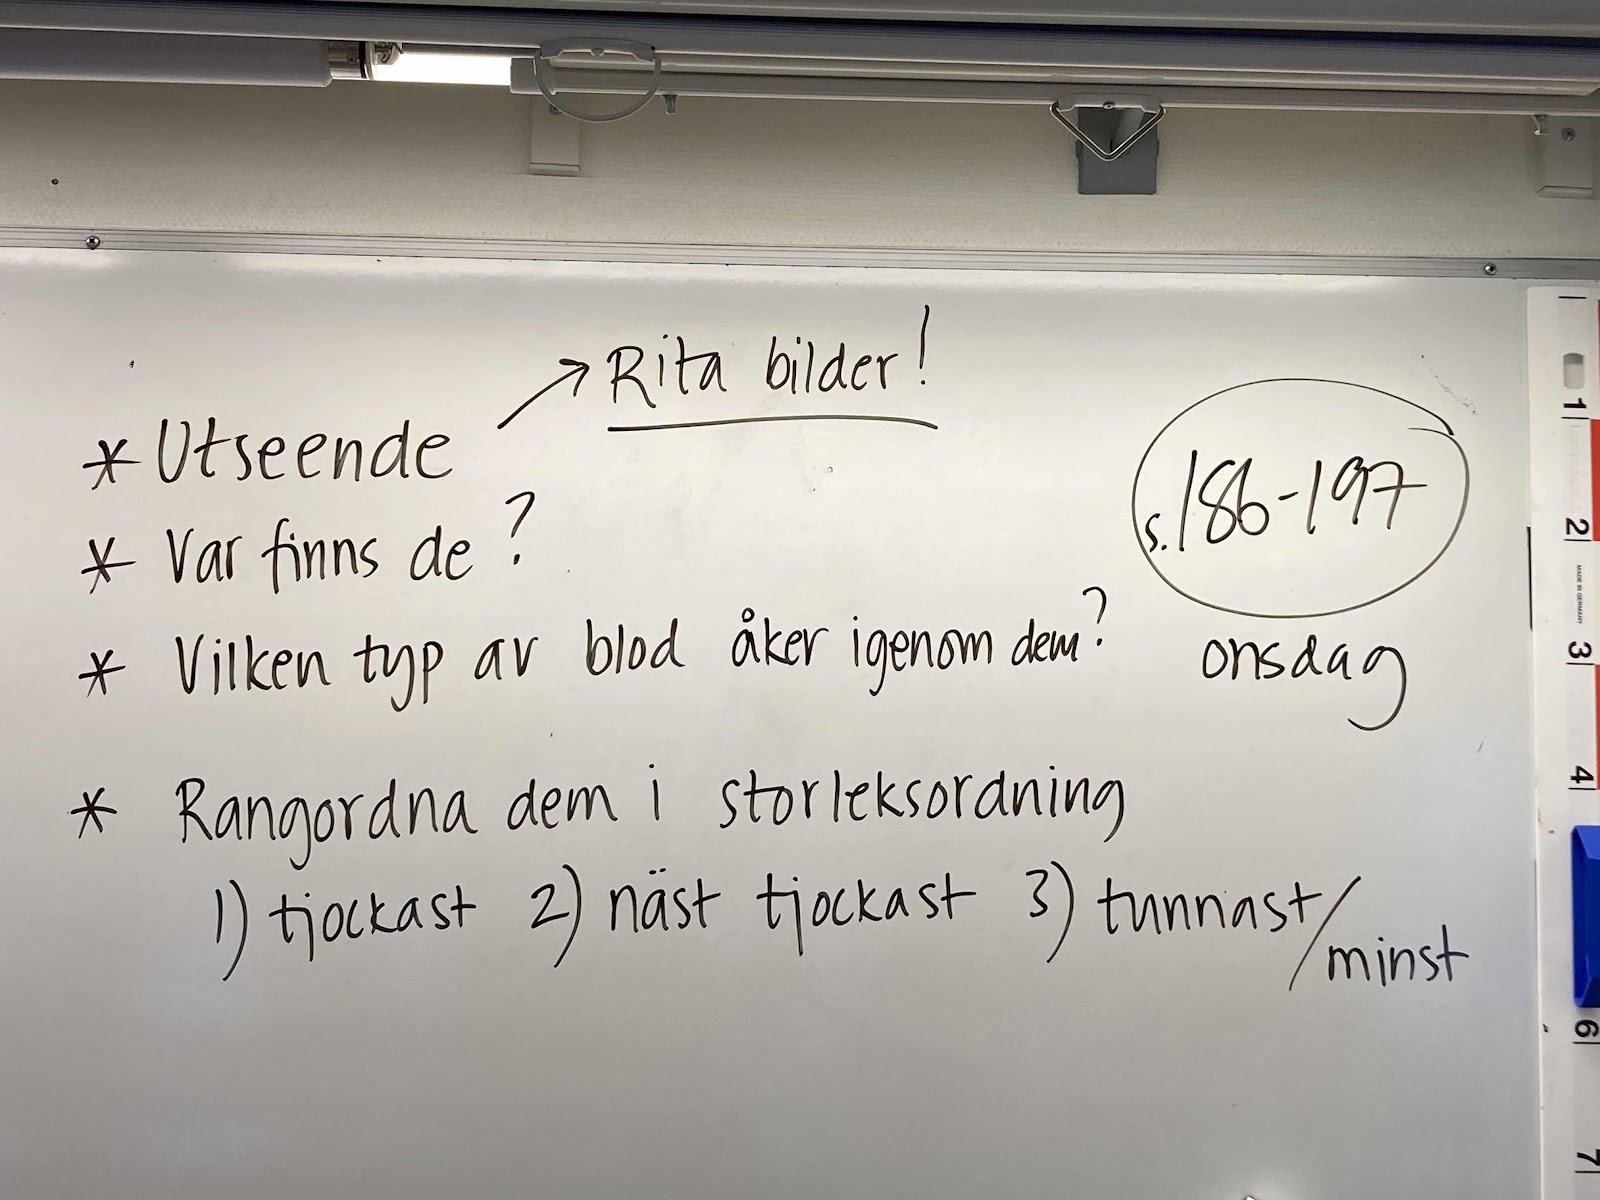 → Rita bilder!
* Utseende
* Var finns de?
* Vilken typ av blod åker igenom dem?
* Rangordna dem i storleksordning
1) tjockast 2) näst tjockast 3) tunnast/
minst
s. 186-197
onsdag
1
2
MADE IN GERMANY
3
4
6
7